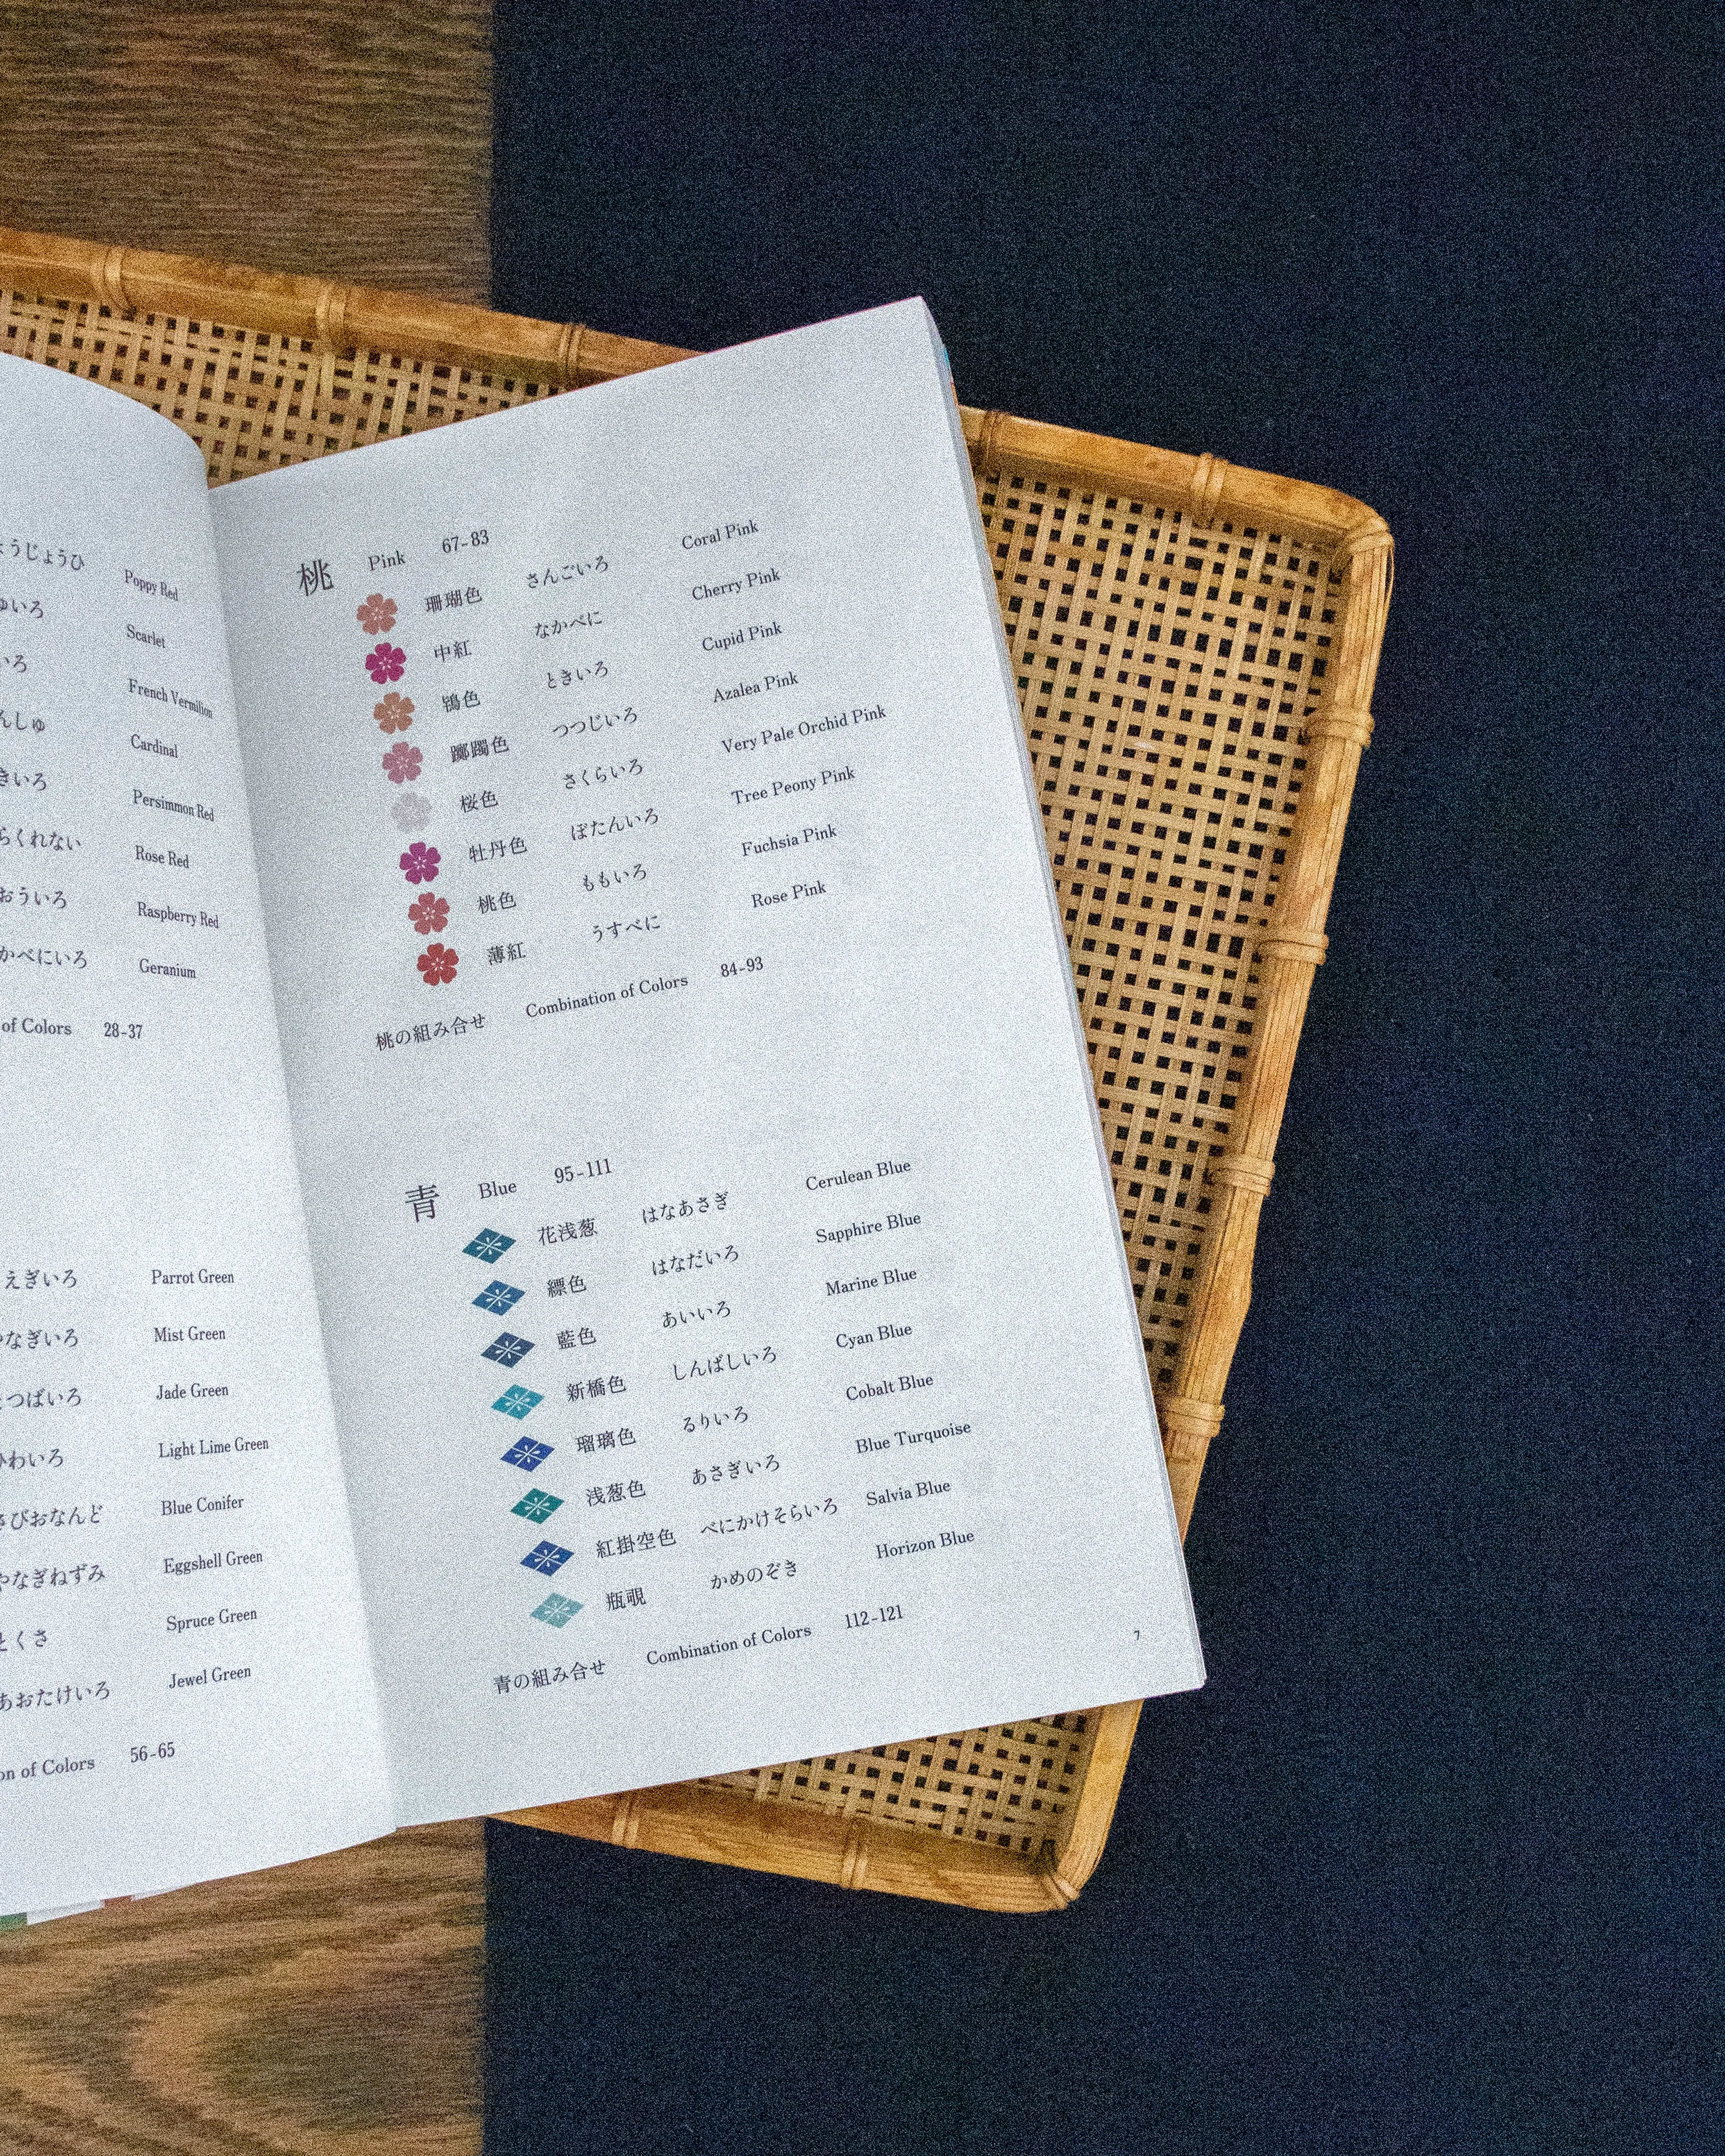 ょうじょうひ Poppy Red
ゅいろ Scarlet
いろ French Vermilion
んしゅ Cardinal
きいろ Persimmon Red
らくれない Rose Red
おういろ Raspberry Red
かべにいろ Geranium
of Colors 28-37
えぎいろ Parrot Green
やなぎいろ Mist Green
つばいろ Jade Green
ひわいろ Light Lime Green
さびおなんど Blue Conifer
やなぎねずみ Eggshell Green
とくさ Spruce Green
あおたけいろ Jewel Green
on of Colors 56-65
桃 Pink 67-83
珊瑚色 さんごいろ Coral Pink
中紅 なかべに Cherry Pink
鴇色 ときいろ Cupid Pink
躑躅色 つつじいろ Azalea Pink
桜色 さくらいろ Very Pale Orchid Pink
牡丹色 ぼたんいろ Tree Peony Pink
桃色 ももいろ Fuchsia Pink
薄紅 うすべに Rose Pink
桃の組み合せ Combination of Colors 84-93
青 Blue 95-111
花浅葱 はなあさぎ Cerulean Blue
縹色 はなだいろ Sapphire Blue
藍色 あいいろ Marine Blue
新橋色 しんばしいろ Cyan Blue
瑠璃色 るりいろ Cobalt Blue
浅葱色 あさぎいろ Blue Turquoise
紅掛空色 べにかけそらいろ Salvia Blue
瓶覗 かめのぞき Horizon Blue
青の組み合せ Combination of Colors 112-121
7